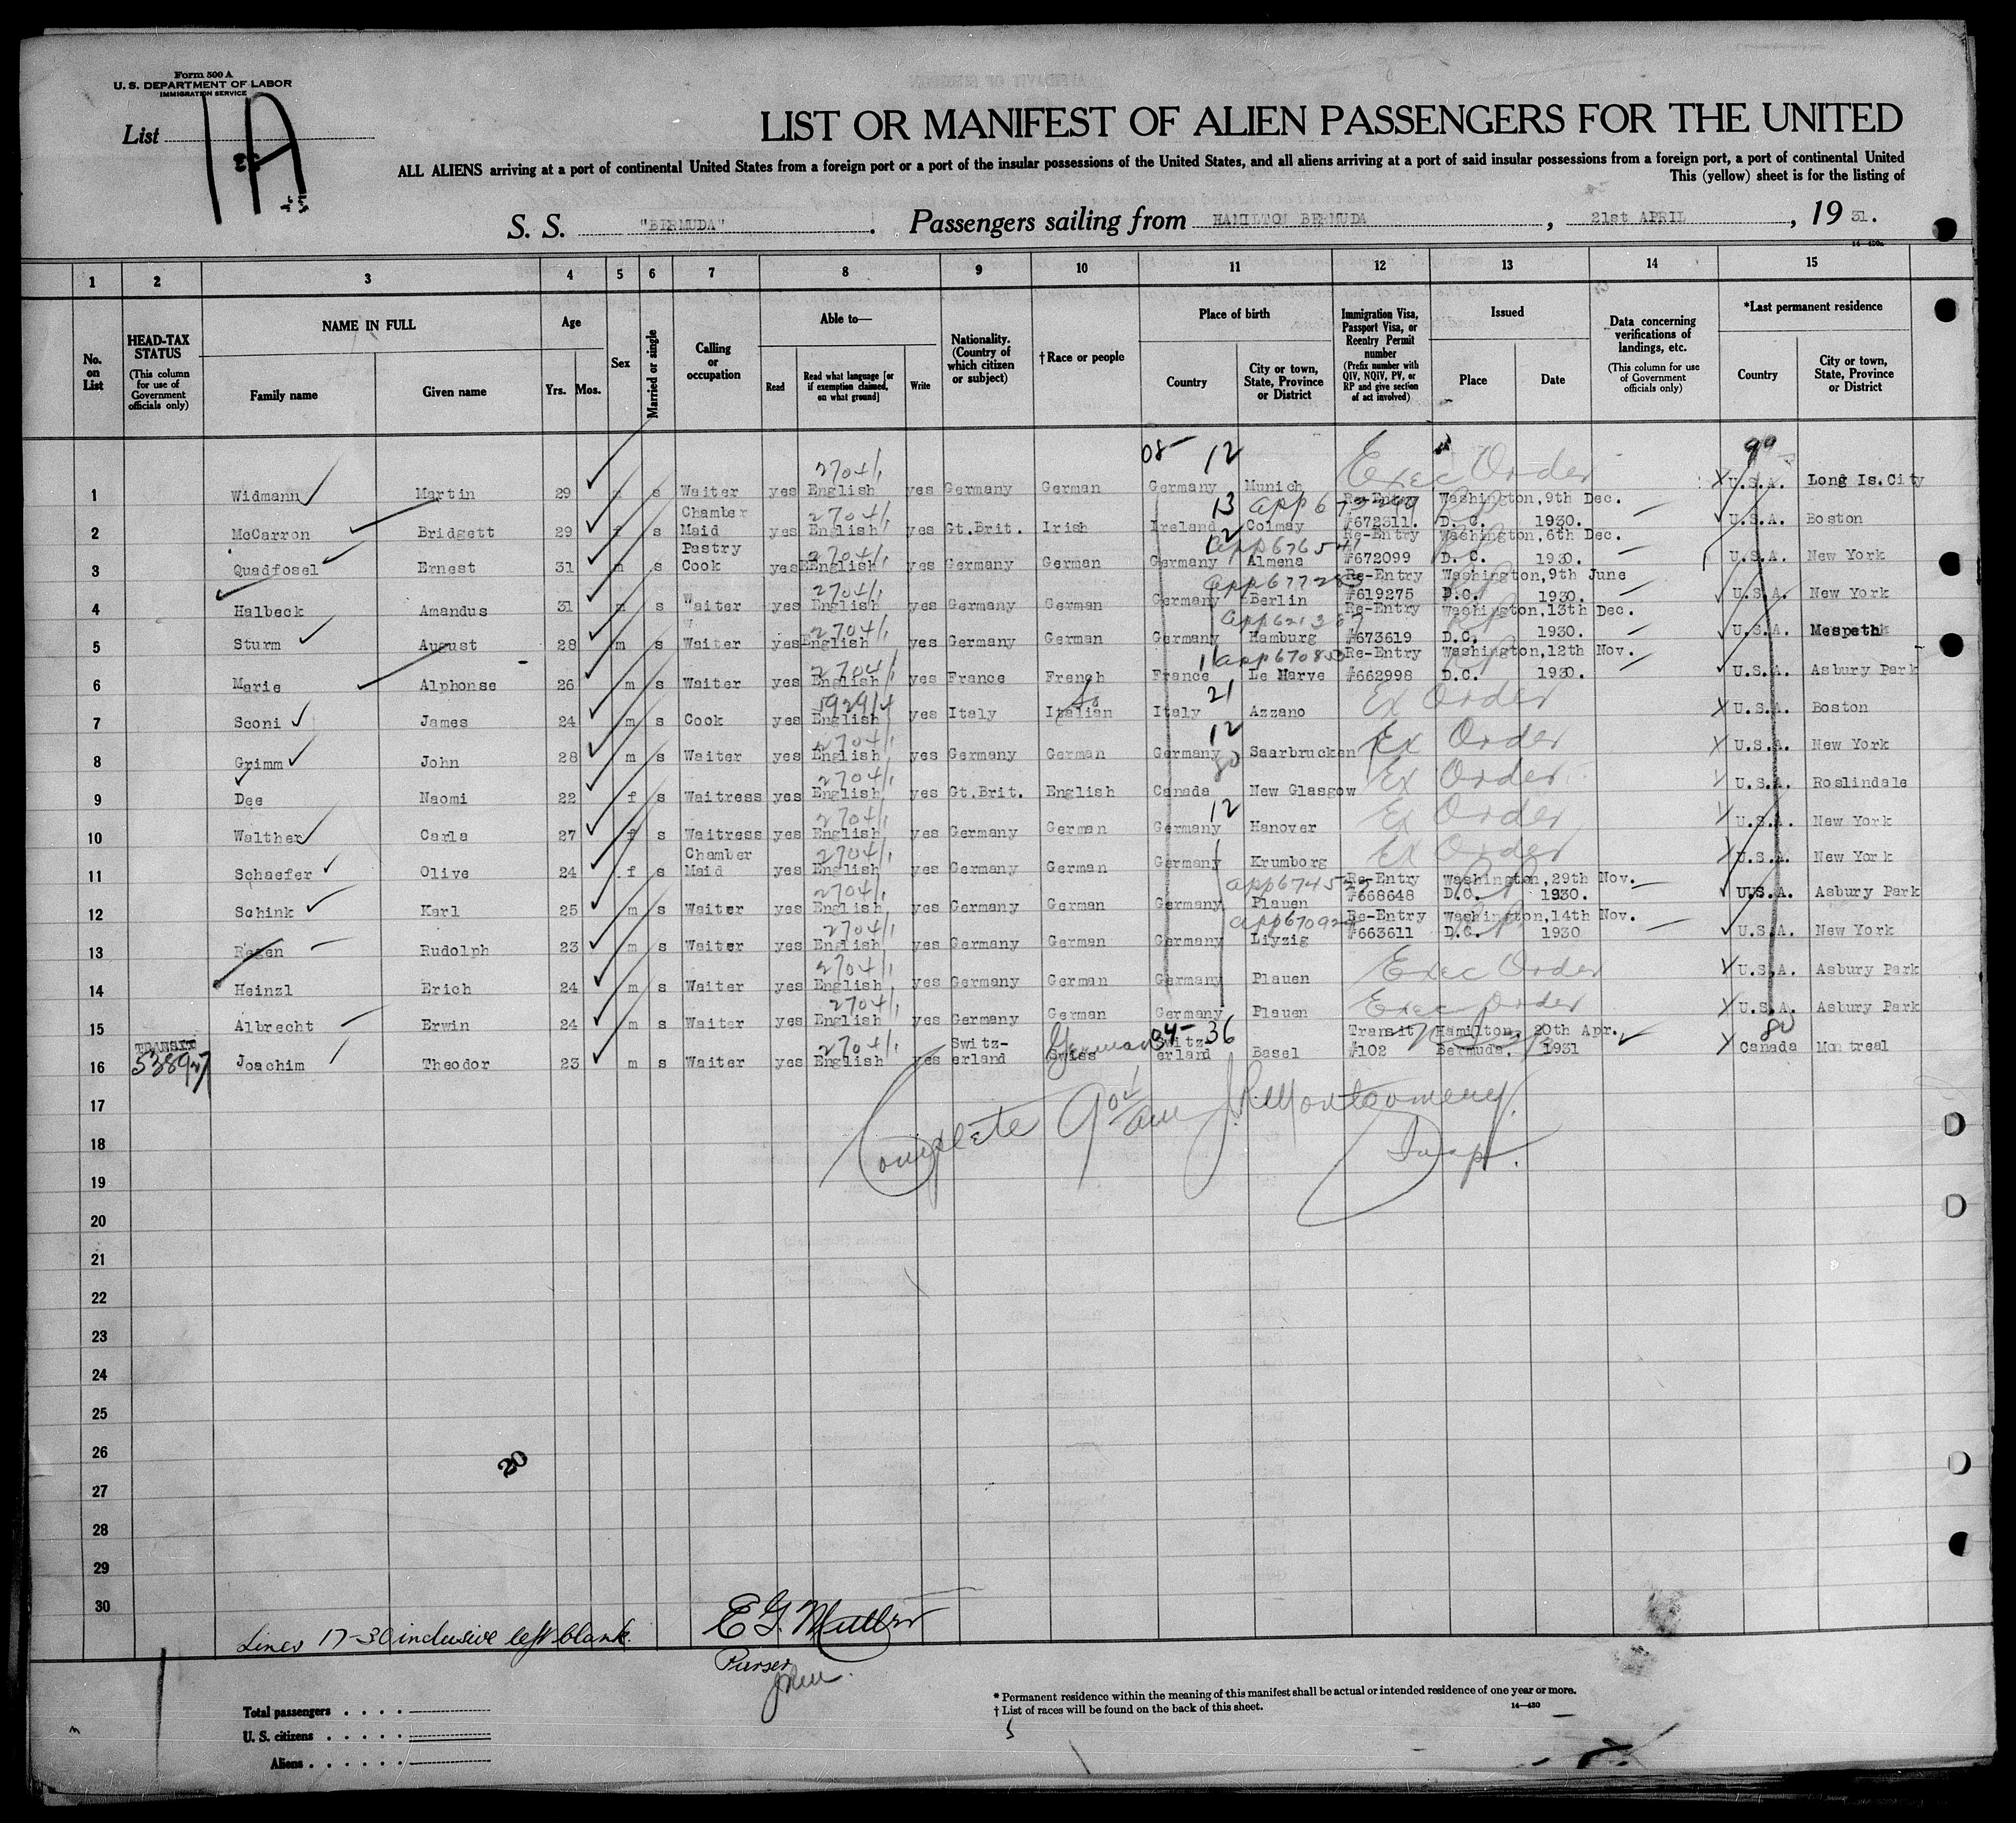 Form 500 A
U. S. DEPARTMENT OF LABOR
IMMIGRATION SERVICE
List 1A
LIST OR MANIFEST OF ALIEN PASSENGERS FOR THE UNITED
ALL ALIENS arriving at a port of continental United States from a foreign port or a port of the insular possessions of the United States, and all aliens arriving at a port of said insular possessions from a foreign port, a port of continental United
This (yellow) sheet is for the listing of
S. S. "BERMUDA". Passengers sailing from HAMILTON BERMUDA, 21st APRIL, 19 31.
1 2 3 4 5 6 7 8 9 10 11 12 13 14 15
No. on List
HEAD-TAX STATUS (This column for use of Government officials only)
NAME IN FULL
Family name Given name
Age Yrs. Mos.
Sex
Married or single
Calling or occupation
Able to—
Read
Read what language [or if exemption claimed, on what ground]
Write
Nationality. (Country of which citizen or subject)
†Race or people
Place of birth
Country
City or town, State, Province or District
Immigration Visa, Passport Visa, or Reentry Permit number (Prefix number with QIV, NQIV, PV, or RP and give section of act involved)
Issued
Place Date
Data concerning verifications of landings, etc. (This column for use of Government officials only)
*Last permanent residence
Country
City or town, State, Province or District
08- 12 99
1 Widmann Martin 29 s Waiter yes English 2704/1 yes Germany German Germany Munich Exec Order U.S.A. Long Is.City
2 McCarron Bridgett 29 f s Chamber Maid yes English 2704/1 yes Gt.Brit. Irish 13 Ireland Colmay Re-Entry #672311. Washington, D. C. 9th Dec. 1930. U.S.A. Boston
3 Quadfosel Ernest 31 m s Pastry Cook yes EEnglish 2704/1 yes Germany German 12 Germany Almena app 67654 Re-Entry #672099 Washington, D. C. 6th Dec. 1930. U.S.A. New York
4 Halbeck Amandus 31 m s Waiter yes English 2704/1 yes Germany German Germany Berlin Re-Entry #619275 Washington, D.C. 9th June 1930. U.S.A. New York
5 Sturm August 28 m s Waiter yes English 2704/1 yes Germany German Germany Hamburg Re-Entry #673619 Washington, D.C. 13th Dec. 1930. U.S.A. Mespeth
6 Marie Alphonse 26 m s Waiter yes English 2704/1 yes France French 11 France Le Harve app 670853 Re-Entry #662998 Washington, D.C. 12th Nov. 1930. U.S.A. Asbury Park
7 Sconi James 24 m s Cook yes English yes Italy Italian So 21 Italy Azzano Ex Order U.S.A. Boston
8 Grimm John 28 m s Waiter yes English 2704/1 yes Germany German 12 Germany Saarbrucken Ex Order U.S.A. New York
9 Dee Naomi 22 f s Waitress yes English 2704/1 yes Gt.Brit. English 80 Canada New Glasgow Ex Order U.S.A. Roslindale
10 Walther Carla 27 f s Waitress yes English 2704/1 yes Germany German 12 Germany Hanover Ex Order U.S.A. New York
11 Schaefer Olive 24 f s Chamber Maid yes English 2704/1 yes Germany German Germany Krumborg Ex Order U.S.A. New York
12 Schink Karl 25 m s Waiter yes English 2704/1 yes Germany German Germany Plauen Re-Entry #668648 Washington, D.C. 29th Nov. 1930. UUS.A. Asbury Park
13 Regen Rudolph 23 m s Waiter yes English 2704/1 yes Germany German Germany Liyzig Re-Entry #663611 Washington, D.C. 14th Nov. 1930 U.S.A. New York
14 Heinzl Erich 24 m s Waiter yes English 2704/1 yes Germany German Germany Plauen Exec Order U.S.A. Asbury Park
15 Albrecht Erwin 24 m s Waiter yes English 2704/1 yes Germany German Germany Plauen Exec Order U.S.A. Asbury Park
16 TRANSIT Joachim Theodor 23 m s Waiter yes English 2704/1 yes Switz-erland Swiss German 04- 36 Switz-erland Basel Transit #102 Hamilton, Bermuda, 20th Apr., 1931 80 Canada Montreal
17
Complete 9 am J. R. Montgomery
18
Insp.
19
20
21
22
23
24
25
26
20
27
28
29
30
Lines 17-30 inclusive left blank.
E G. Muller
Purser
Total passengers
U. S. citizens
Aliens
* Permanent residence within the meaning of this manifest shall be actual or intended residence of one year or more.
† List of races will be found on the back of this sheet.
14—430